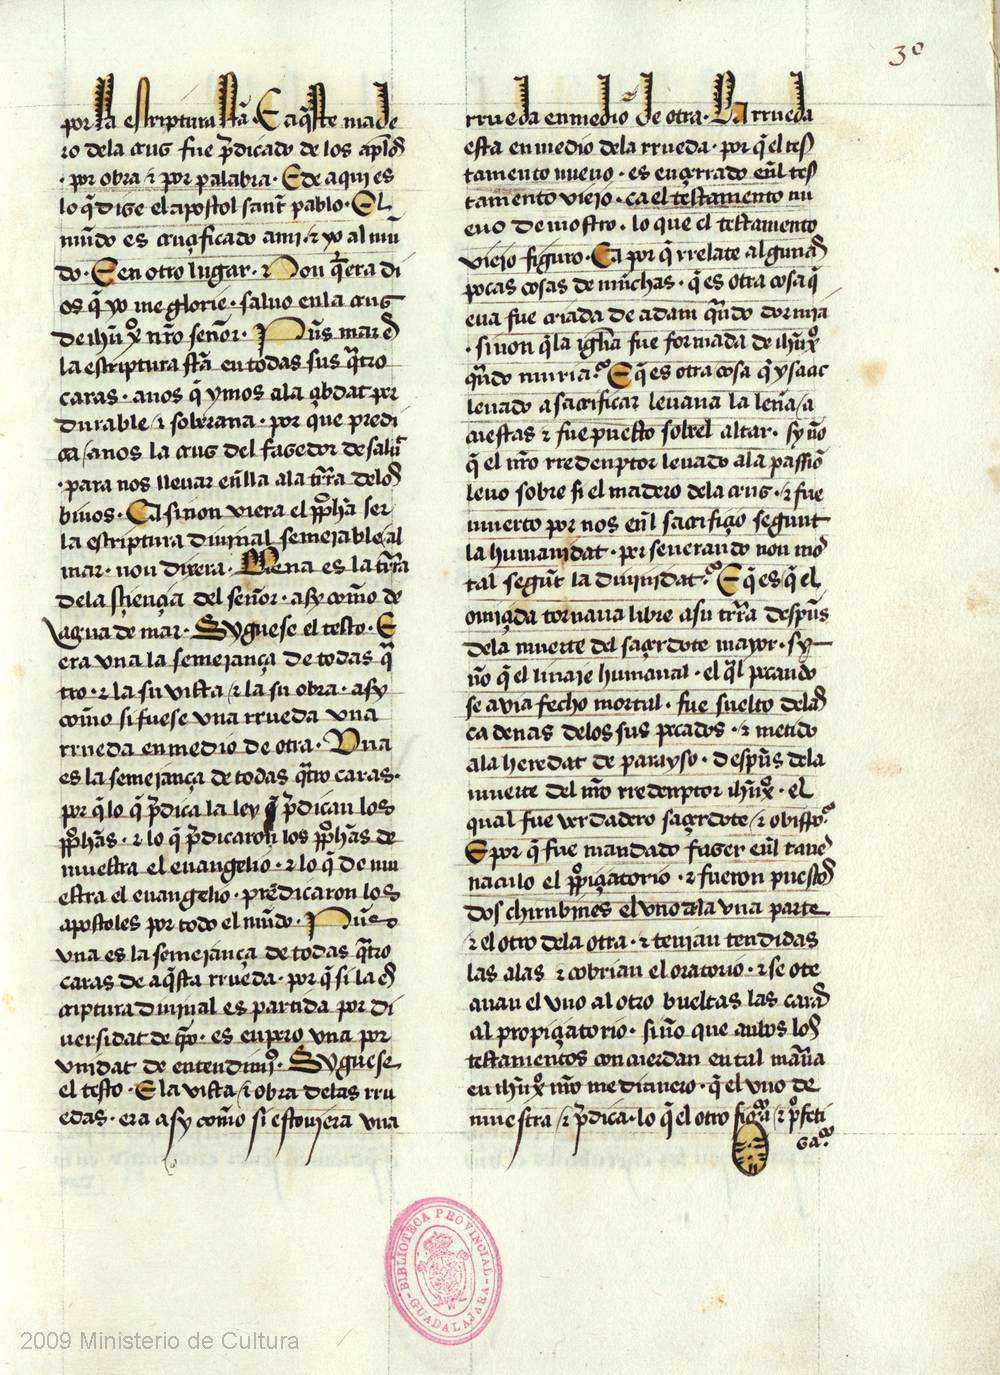 30
por la escriptura sc̃ã. E aq̃ste made
ro dela cruz fue p̃dicado de los ap̃loẽs
. por obra ⁊ por palabra. E de aqui es
lo q̃ dize el apostol sant pablo. El
mũdo es cruçificado a mi. ⁊ yo al mũ
do. E en otro lugar. Non q̃era di
os q̃ yo me glorie. saluo enla cruz
de ihũ xp̃o nr̃o señor. Pues mar es
la escriptura sc̃ã en todas sus q̃tro
caras. a nos q̃ ymos ala çibdat per
durable ⁊ soberana. por que predi
ca / a nos la cruz del fazedor de salut
. para nos lleuar eñlla ala tr̃ra delos
biuos. Ca si non viera el p̃pheta ser
la escriptura diuinal semejable / al
mar. non dixera. llena es la tr̃ra
dela sçiençia del señor. asy com̃o de
agua de mar. Syguese el testo. E
era vna la semejança de todas q̃
tro. ⁊ la su vista / ⁊ la su obra. asy
com̃o si fuese vna rrueda vna
rrueda en medio de otra. Vna
es la semejança de todas q̃tro caras.
por q̃ lo q̃ p̃dica la ley p̃dican los
p̃phetas. ⁊ lo q̃ p̃dicaron los p̃phetas de
muestra el euangelio. ⁊ lo q̃ de mu
estra el euangelio. predicaron los
apostoles por todo el mũdo. Pues
vna es la semejança de todas q̃tro
caras de aq̃sta rrueda. por q̃ si la es
criptura diuinal es partida por di
uersidat de tp̃o. es enpero vna por
vnidat de entendimj̃o. Syguese
el testo. E la vista / ⁊ obra delas rru
edas. era asy com̃o si estouiera vna
rrueda en medio de otra. La rrueda
esta en medio dela rrueda. por q̃ el tes
tamento nueuo. es ençerrado eñl tes
tamento viejo. ca el testamento nu
euo demostro. lo que el testamento
viejo figuro. Ca por q̃ rrelate algunas
pocas cosas de muchas. q̃ es otra cosa q̃
eua fue criada de adam q̃ndo dormja
. sinon q̃ la igl̃ia fue formada de ihũ xp̃o
q̃ndo muria. E q̃ es otra cosa q̃ ysaac
leuado a sacrificar leuaua la leña / a
cuestas ⁊ fue puesto sobrel altar. sy no
q̃ el nr̃o rredenptor leuado ala passion
leuo sobre si el madero dela cruz. ⁊ fue
muerto por nos eñl sacrifiçio segunt
la humanidat. perseuerando non mor
tal segũt la diuinidat. E q̃ es q̃ el
omiçida tornaua libre a su tr̃ra despues
dela muerte del saçerdote mayor. sy
no q̃ el linaje humanal. el q̃l pecando
se auia fecho mortal. fue suelto delas
cadenas delos sus pecados. ⁊ metido
ala heredat de parayso. despues dela
muerte del nr̃o rredenptor ihũ xp̃o. el
qual fue verdadero saçerdote / ⁊ obispo.
E por q̃ fue mandado fazer eñl taber
naculo el p̃piçiatorio. ⁊ fueron puestos
dos chirubines el vno ala vna parte
⁊ el otro dela otra. ⁊ tenian tendidas
las alas ⁊ cobrian el oratorio. ⁊ se ote
auan el vno al otro bueltas las caras
al propiçiatorio. sino que anbos los
testamentos concuerdan en tal manera
en ihũ xp̃o nr̃o medianero. q̃ el vno de
muestra / ⁊ p̃dica. lo q̃ el otro figura / ⁊ p̃feti
za.
BIBLIOTECA PROVINCIAL
GUADALAJARA
2009 Ministerio de Cultura